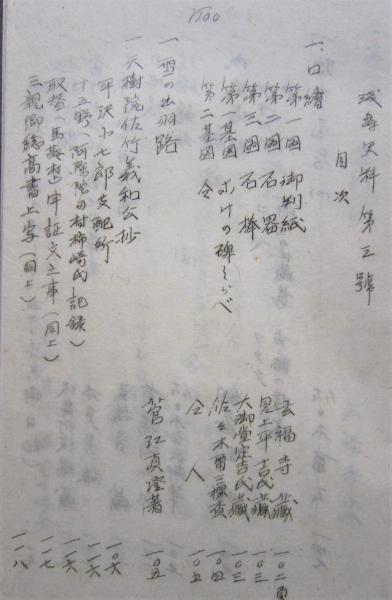 1100
浅舞史料第三號
目次
一、口繪
第一図 御判紙 玄福寺藏 一〇二頁
第二図 石器 見上平吉氏藏 一〇三
第三図 石棒 大御堂定吉氏藏 一〇三
第一基図 ホけの碑しらべ 佐々木雷三調査 一〇四
第二基図 仝 仝人 一〇五
一 雪の出羽路 菅江真澄著 一〇五
一 天樹院佐竹義和公抄 一〇六
平沢小七郎支配所 一一六
十五野 (阿弥陀田村柿崎氏記録) 一一六
取替 申証文之事 (同上) 一一七
三親御総高書上写 (同上) 一一八